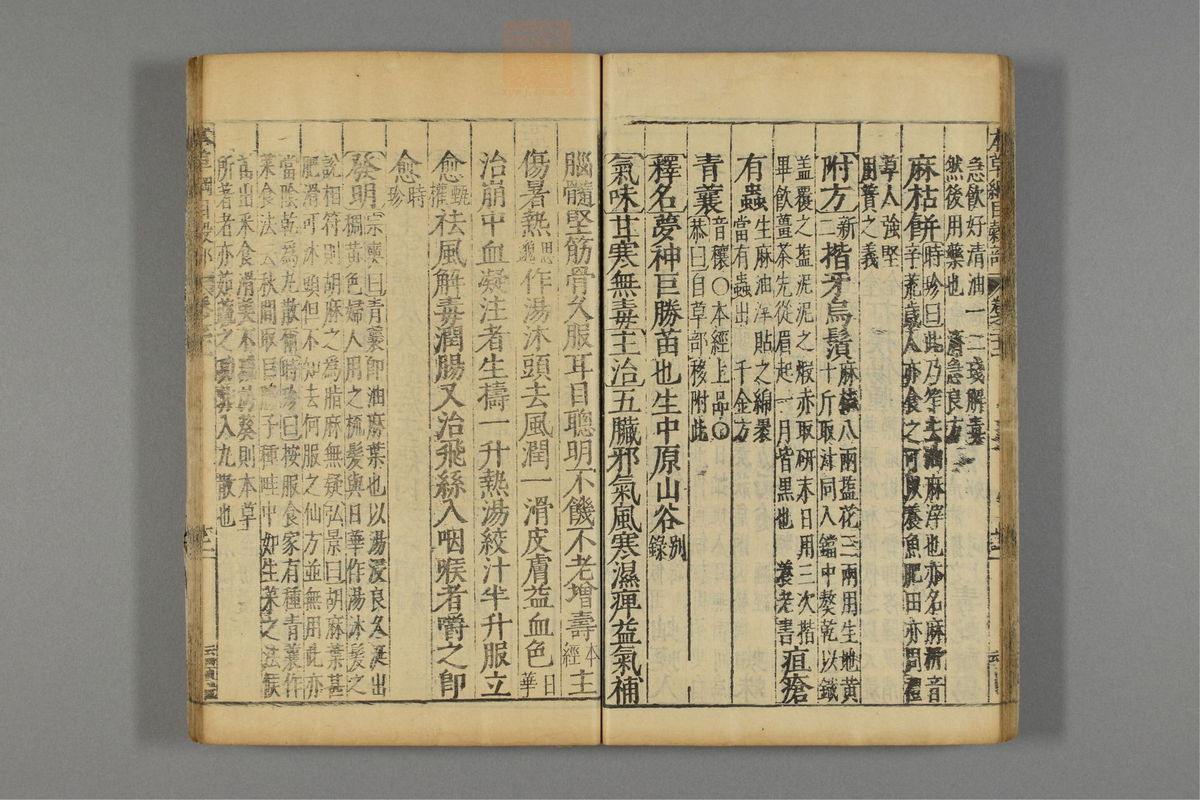 急飲好清油一二琖解毒
然後用藥也 濟急良方
麻枯餅時珍曰此乃笮去油麻滓也亦名麻籸音
辛荒歲人亦食之可以養魚肥田亦周禮
草人強堅
用蕡之義
附方新二揩牙烏鬚麻枯八兩鹽花三兩用生地黃
十斤取汁同入鐺中熬乾以鐵
蓋覆之鹽泥泥之煅赤取研末日用三次揩
畢飲薑茶先從眉起一月皆黑也 養老書疽瘡
有蟲生麻油滓貼之綿裹
當有蟲出 千金方
青蘘音穰〇本經上品〇
恭曰自草部移附此
釋名夢神巨勝苗也生中原山谷別錄
氣味甘寒無毒主治五臟邪氣風寒濕痺益氣補
腦髓堅筋骨久服耳目聰明不饑不老增壽本經主
傷暑熱思邈作湯沐頭去風潤一滑皮膚益血色日華
治崩中血凝注者生檮一升熱湯絞汁半升服立
愈甄權祛風解毒潤腸又治飛絲入咽喉者嚼之卽
愈時珍
發明宗奭曰青蘘卽油麻葉也以湯浸良久涎出
稠黃色婦人用之梳髮與日華作湯沐髮之
說相符則胡麻之爲脂麻無疑弘景曰胡麻葉甚
肥滑可沐頭但不知去何服之仙方並無用此亦
當陰乾爲丸散爾時珍曰按服食家有種青蘘作
菜食法云秋間取巨勝子種畦中如生菜之法候
苗出采食滑美不
葵則本草
所著者亦茹蔬之
入丸散也